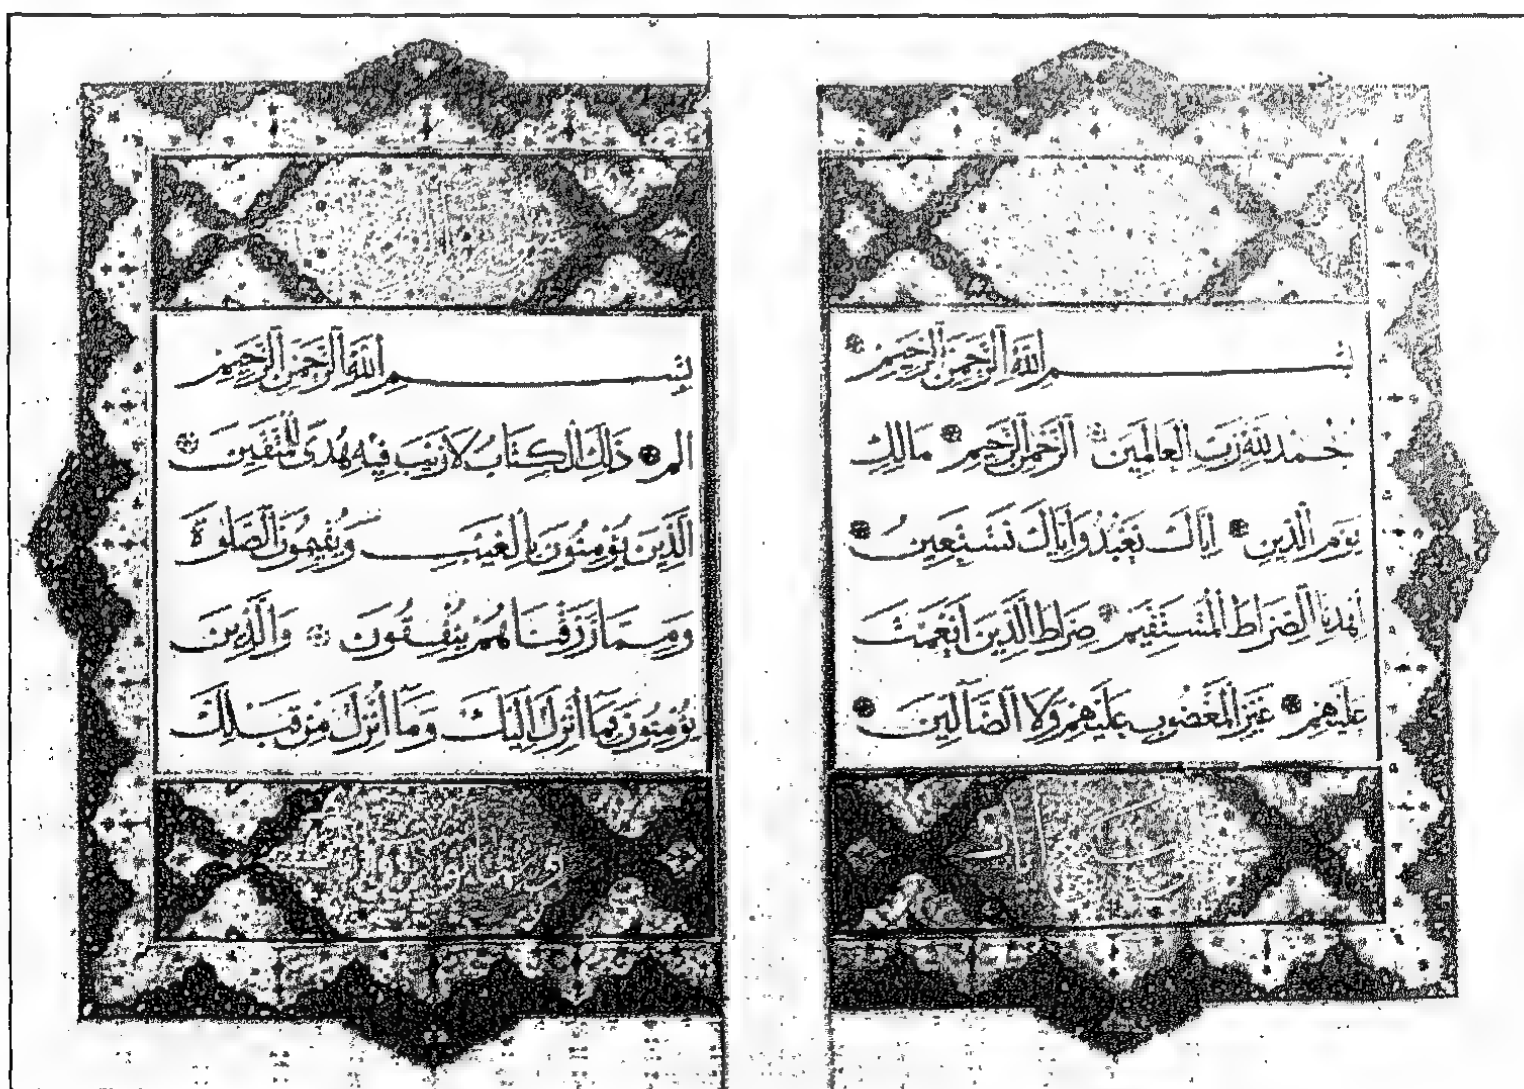 بِسْمِ اللّٰهِ الرَّحْمٰنِ الرَّحِيمِ
الحمد لِلّٰهِ رَبِّ الْعَالَمِينَ الرَّحْمٰنِ الرَّحِيمِ مَالِكِ
يَوْمِ الدِّينِ اِيَّاكَ نَعْبُدُ وَاِيَّاكَ نَسْتَعِينُ
اِهْدِنَا الصِّرَاطَ الْمُسْتَقِيمَ صِرَاطَ الَّذِينَ اَنْعَمْتَ
عَلَيْهِمْ غَيْرِ الْمَغْضُوبِ عَلَيْهِمْ وَلَا الضَّالِّينَ
بِسْمِ اللّٰهِ الرَّحْمٰنِ الرَّحِيمِ
الم ذٰلِكَ الْكِتَابُ لَا رَيْبَ فِيهِ هُدًى لِلْمُتَّقِينَ
الَّذِينَ يُؤْمِنُونَ بِالْغَيْبِ وَيُقِيمُونَ الصَّلٰوةَ
وَمِمَّا رَزَقْنَاهُمْ يُنْفِقُونَ وَالَّذِينَ
يُؤْمِنُونَ بِمَا اُنْزِلَ اِلَيْكَ وَمَا اُنْزِلَ مِنْ قَبْلِكَ